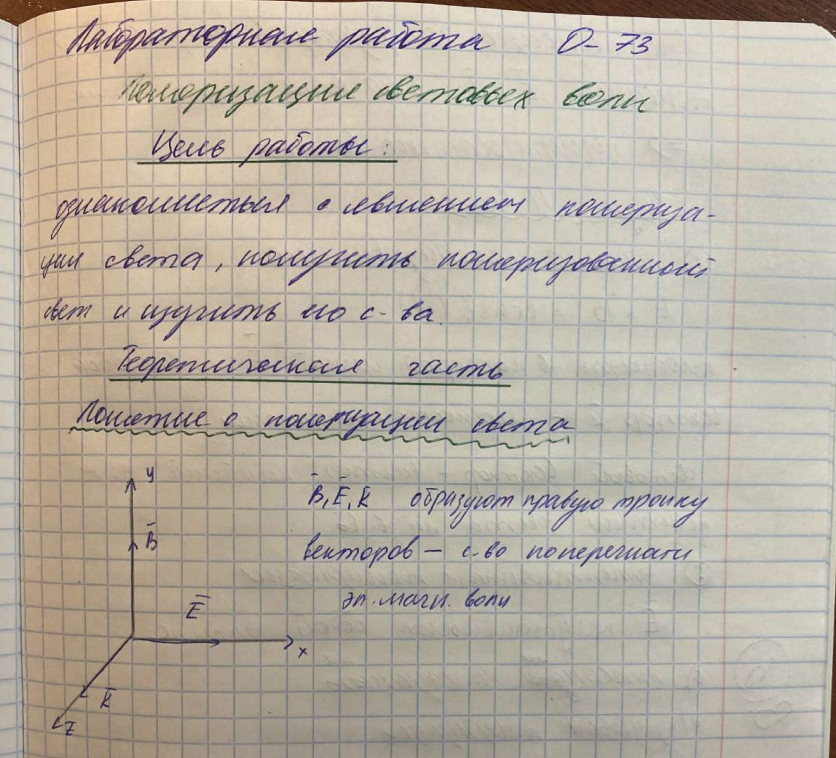 Лабораторная работа О-73
Поляризация световых волн
Цель работы:
ознакомиться с явлением поляриза-
ции света, получить поляризованный
свет и изучить его с-ва.
Теоретическая часть
Понятие о поляризации света
y
B̅, E̅, K̅ образуют правую тройку
B̅
векторов — с-во поперечности
эл. магн. волн
E̅
x
K̅
z